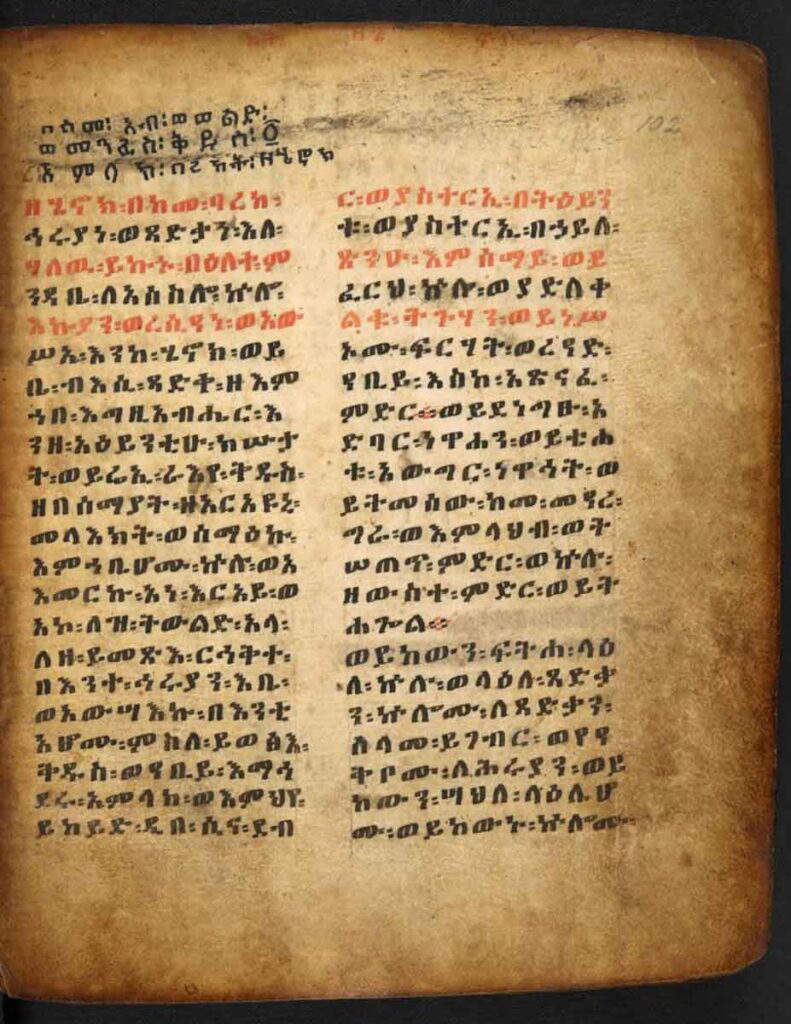 በስመ፡አብ፡ወወልድ፡
ወመንፈስ፡ቅዱስ፡፩
አምላክ፡በረከት፡ዘሄኖክ
102
ዘሄኖክ፡በከመ፡ባረከ፡
ኅሩያነ፡ወጻድቃን፡እለ፡
ሃለዉ፡ይኩኑ፡በዕለት፡ም
ንዳቤ፡ለአሰስሎ፡ኵሎ፡
እኩያን፡ወረሲዓነ፡ወአው
ሥአ፡እንከ፡ሄኖክ፡ወይ
ቤ፡ብእሲ፡ጻድቅ፡ዘእም
ኀበ፡እግዚአብሔር፡እ
ንዘ፡አዕይንቲሁ፡ክሡታ
ት፡ወይሬኢ፡ራእየ፡ቅዱስ፡
ዘበሰማያት፡ዘአርአዩኒ፡
መላእክት፡ወሰማዕኩ፡
እምኀቤሆሙ፡ኵሎ፡ወአ
እመርኩ፡አነ፡እርአይ፡ወ
አኮ፡ለዝ፡ትውልድ፡አላ፡
ለዘ፡ይመጽእ፡ርኅቅተ፡
በእንተ፡ኅሩያን፡እቤ፡
ወአውሣእኩ፡በእንቲ
አሆሙ፡ምስለ፡ይወፅእ፡
ቅዱስ፡ወዓቢይ፡እማኅ
ደሩ፡አምላክ፡ወእምህየ፡
ይከይድ፡ዲበ፡ሲና፡ደብ
ር፡ወያስተርኢ፡በትዕይን
ቱ፡ወያስተርኢ፡በኃይለ፡
ጽንሁ፡እምሰማይ፡ወይ
ፈርህ፡ኵሉ፡ወያድለቀ
ልቁ፡ትጉሃን፡ወይነሥ
ኦሙ፡ፍርሃት፡ወረዓድ፡
ዓቢይ፡እስከ፡አጽናፈ፡
ምድር።ወይደነግፁ፡አ
ድባር፡ነዋኅን፡ወይቴሐ
ቱ፡አውግር፡ነዋኃት፡ወ
ይትመሰው፡ከመ፡መዓረ፡
ግራ፡ወእምላህብ፡ወት
ሠጠም፡ምድር፡ወኵሉ፡
ዘውስተ፡ምድር፡ወይት
ሐጐል።
ወይከውን፡ፍትሐ፡ላዕ
ለ፡ኵሉ፡ወላዕለ፡ጻድቃ
ን፡ኵሎሙ፡ለጻድቃን፡
ሰላመ፡ይገብር፡ወየዓ
ቅቦሙ፡ለኅሩያን፡ወይ
ከውን፡ሣህል፡ላዕሌሆ
ሙ፡ወይከውኑ፡ኵሎሙ፡